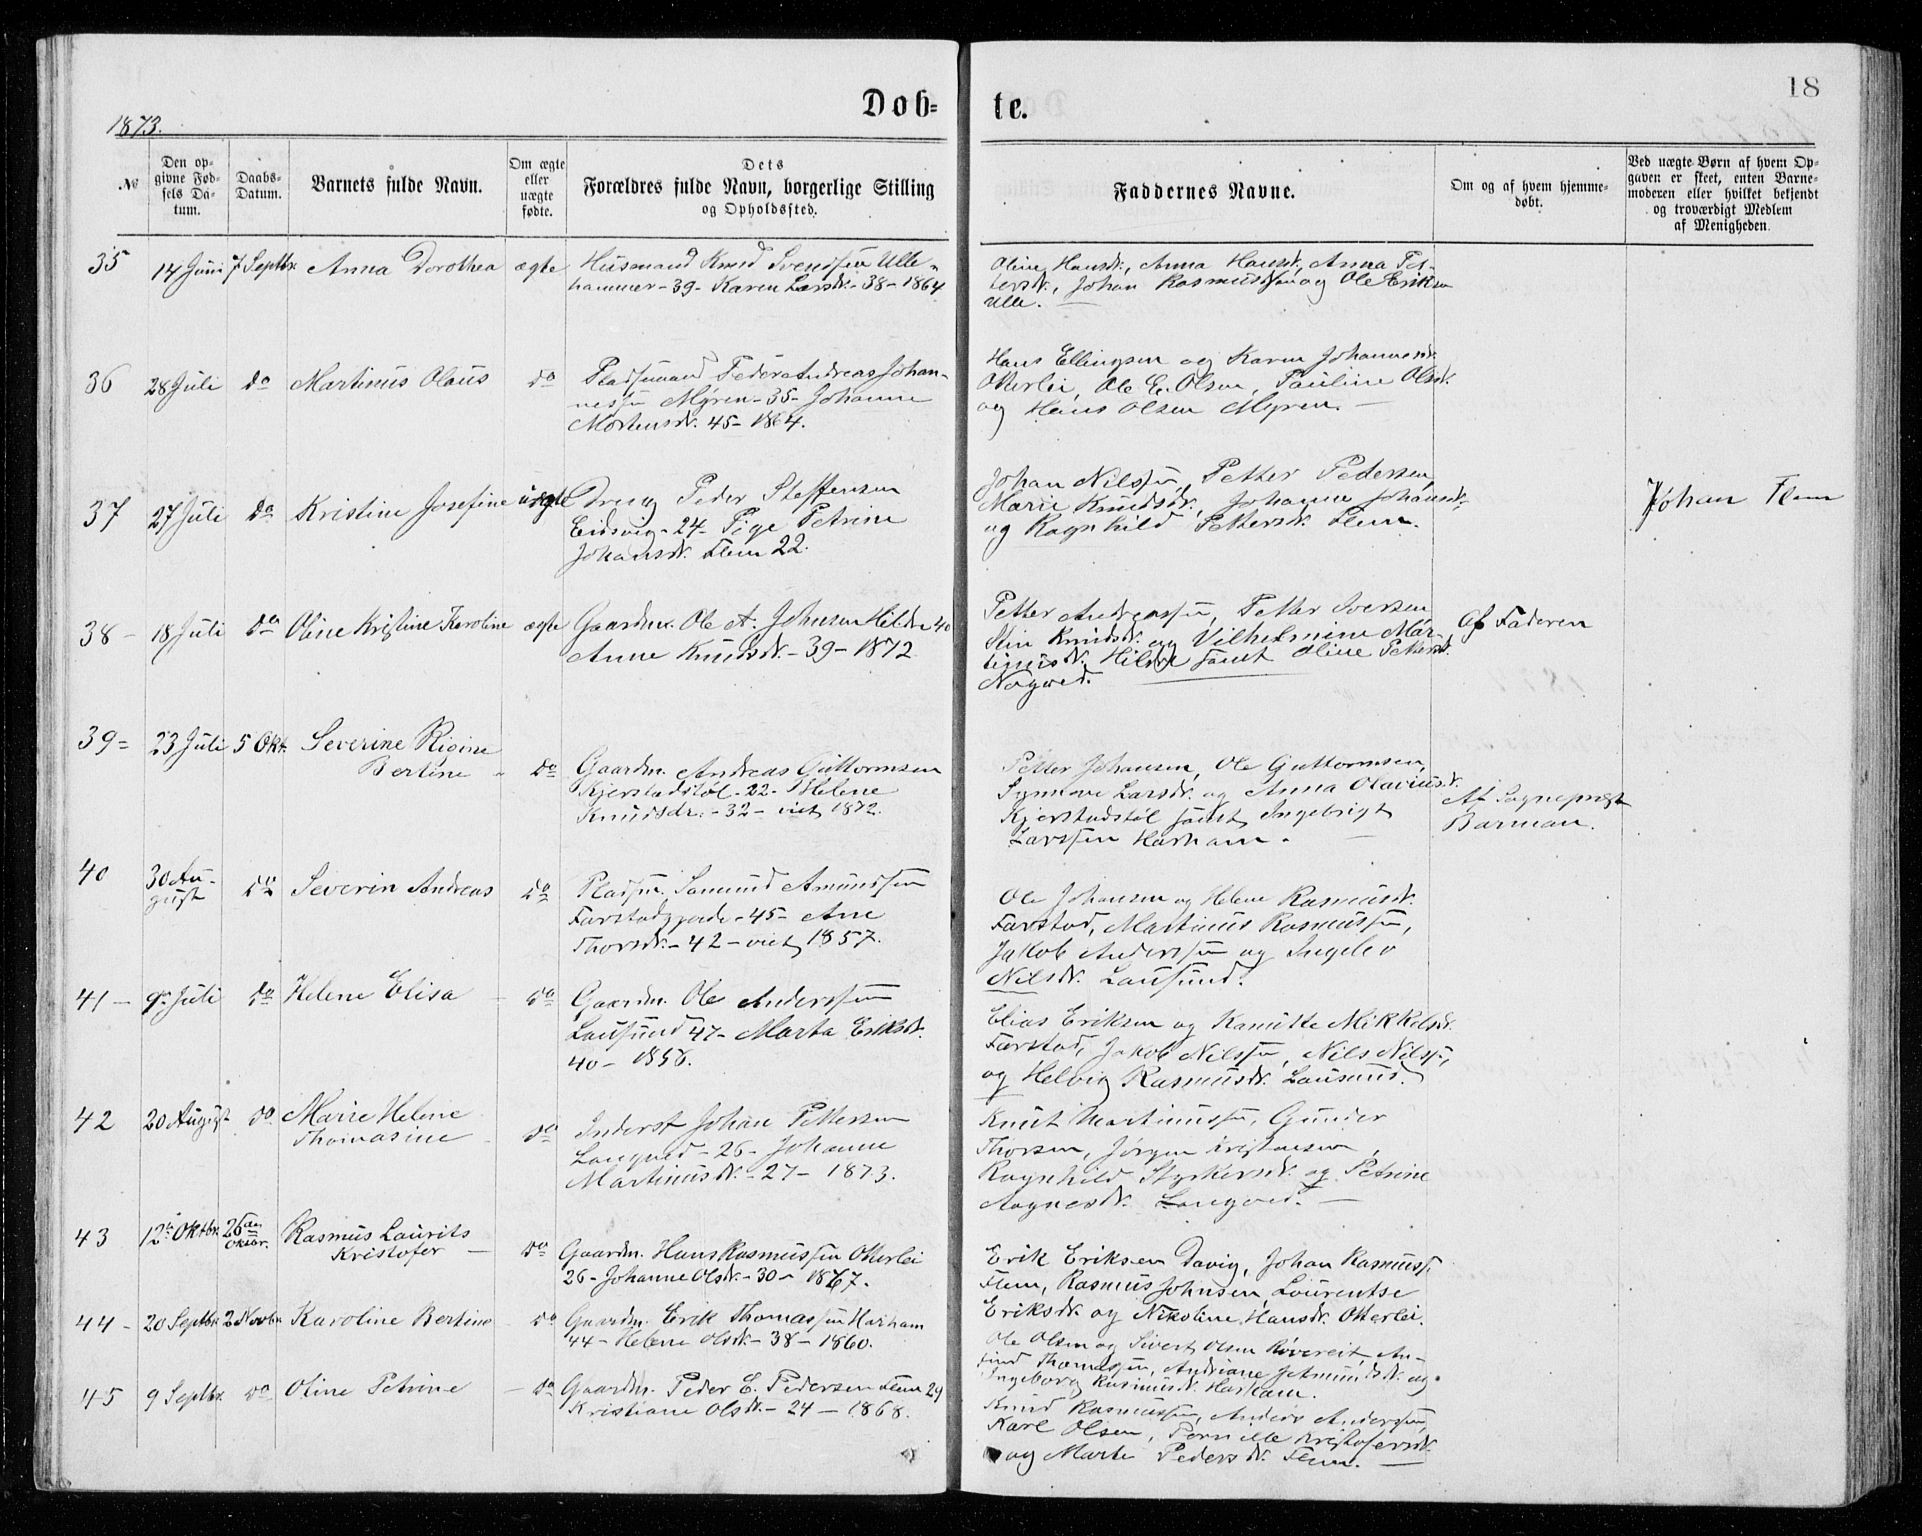 Döb-
te.
18
1873.
№
Den op-
givne Fød-
sels Da-
tum.
Daabs-
Datum.
Barnets fulde Navn.
Om ægte
eller
uægte
fødte.
Dets
Forældres fulde Navn, borgerlige Stilling
og Opholdssted.
Faddernes Navne.
Om og af hvem hjemme-
døbt.
Ved uægte Børn af hvem Op-
gaven er skeet, enten Barne-
moderen eller hvilket bekjendt
og troværdigt Medlem
af Menigheden.
35
14 Juni
7 Septbr.
Anna Dorothea
ægte
Husmand Knud Svendsen Ulle-
hammer - 39 - Karen Larsdr. - 38 - 1864
Oline Hansdr., Anna Hansdr., Anna Pet-
tersdr., Johan Rasmussen og Ole Eriksen
Ulle.
36
28 Juli
do
Martinus Olaus
do
Pladsmand Peder Andreas Johan-
nessen Myren - 35 - Johanne
Mortensdr. 45 - 1864.
Hans Ellingsen og Karen Johannesdr.
Otterlei, Ole E. Olsen, Pauline Olsdr.
og Hans Olsen Myren. -
37
27 Juli
do
Kristine Josefine
uægte
Dreng Peder Steffensen
Eidsvig - 24 - Pige Petrine
Johansdr. Flem 22.
Johan Nilssen, Petter Pedersen,
Marie Knudsdr., Johanne Johansdr.
og Ragnhild Pettersdr. Flem.
Johan Flem
38 -
18 Juli
do
Oline Kristine Karoline
ægte
Gaardm. Ole A. Johnsen Hildre 40
Anne Knudsdr. - 39 - 1872
Petter Andreassen, Petter Iversen,
Stin Knudsdr. og Vilhelmine Mar-
tinusdr. Hildre samt Oline Pettersdr.
Nogved.
Af Faderen
39 =
23 Juli
5 Okt.
Severine Rigine
Bertine
do
Gaardm. Andreas Guttormsen
Kjerstadstøl - 22 - Helene
Knudsdr. - 32 - viet 1872.
Petter Johansen, Ole Guttormsen,
Synnøve Larsdr. og Anna Olaviusdr.
Kjerstadstøl samt Ingebrigt
Larssen Harham.
Af Sogneprest
Barman.
40
30 Au-
gust
do
Severin Andreas
do
Pladsm. Samund Amundsen
Farstadgjerde - 45 - Ane
Thorsdr. - 42 - viet 1857.
Ole Johansen og Helene Rasmusdr.
Farstad, Martinus Rasmussen,
Jakob Anderssen og Ingelev
Nilsdr. Lausund.
41 -
9 Juli
do
Helene Elisa
do
Gaardm. Ole Anderssen
Lausund 47 - Marta Eriksdr.
40 - 1858.
Elias Eriksen og Kanutte Mikkelsdr.
Farstad, Jakob Nilssen, Nils Nilss.
og Helvig Rasmusdr. Lausund.
42
20 August
do
Marie Helene
Thomasine
do
Inderst Johan Pettersen
Langved - 26 - Johanne
Martinusdr. - 27 - 1873.
Knut Martinussen, Gunder
Thorsen, Jørgen Kristensen,
Ragnhild Styrkersdr. og Petrine
Aagesdr. Langved. -
43
12te Oktbr.
26de
Oktbr.
Rasmus Laurits
Kristofer -
do
Gaardm. Hans Rasmussen Otterlei
26 - Johanne Olsdr. - 30 - 1867.
Erik Eriksen Davig, Johan Rasmuss.
Flem, Rasmus Johnsen, Laurentse
Eriksdr. og Nikoline Hansdr. Otterlei.
44 -
20 Septbr.
2 Novbr.
Karoline Bertine
do
Gaardm. Erik Thomassen Harham
44 - Helene Olsdr. - 38 - 1860.
Ole Olsen og Sivert Olsen Røvereit, An-
Thomassen, Andriane Amundsdr. og
Ingeborg Rasmusdr. Harham.
45
9 Septbr.
do
Oline Petrine
do
Gaardm. Peder E. Pedersen Flem 29
Kristiane Olsdr. - 24 - 1868.
Knud Rasmussen, Anders Anderssen,
Karl Olsen, Pernille Kristofersdr.
og Marte Pedersdr. Flem. -